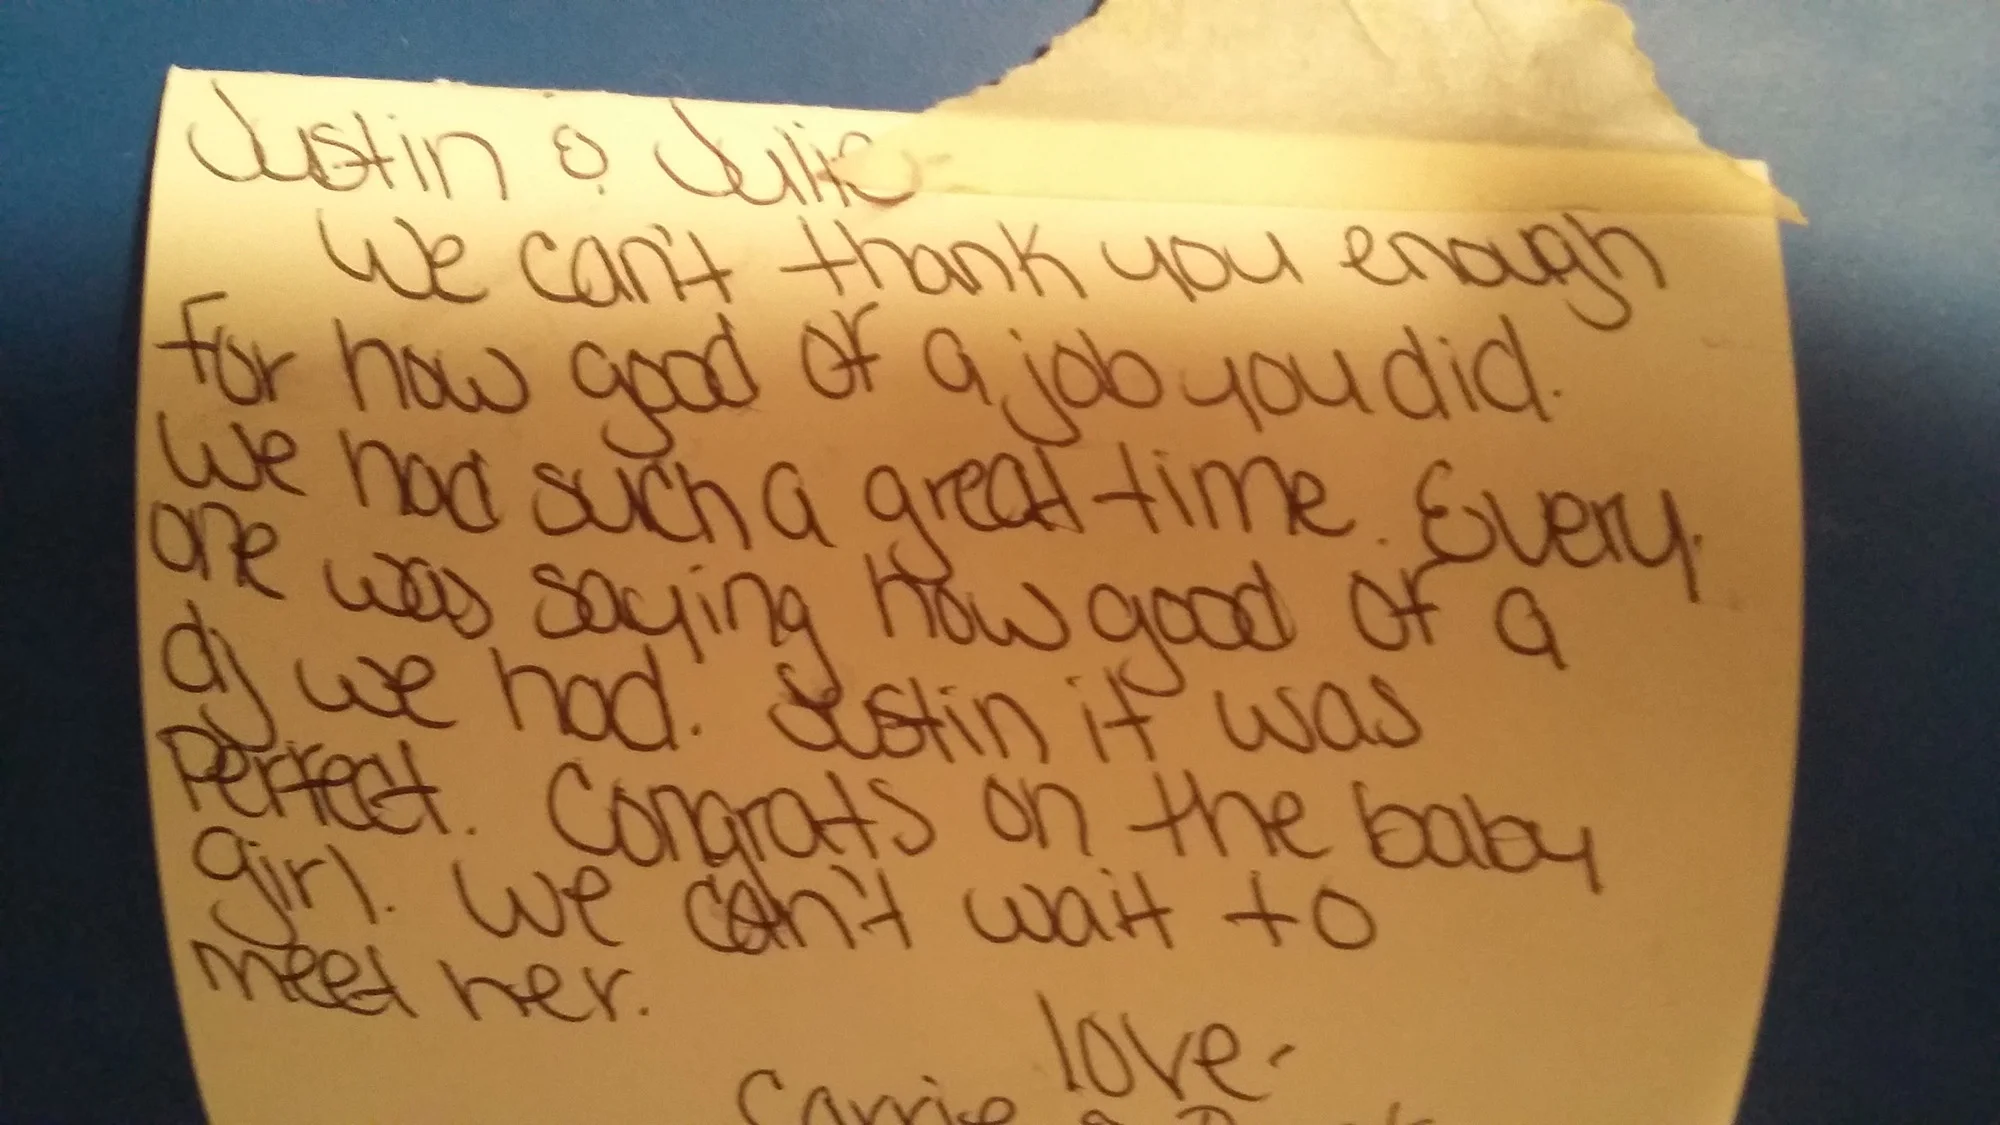 Justin & Julie
We can't thank you enough
For how good of a job you did.
We had such a great time. Every-
one was saying how good of a
dj we had. Justin it was
Perfect. Congrats on the baby
girl. We can't wait to
meet her.
love-
Carrie &